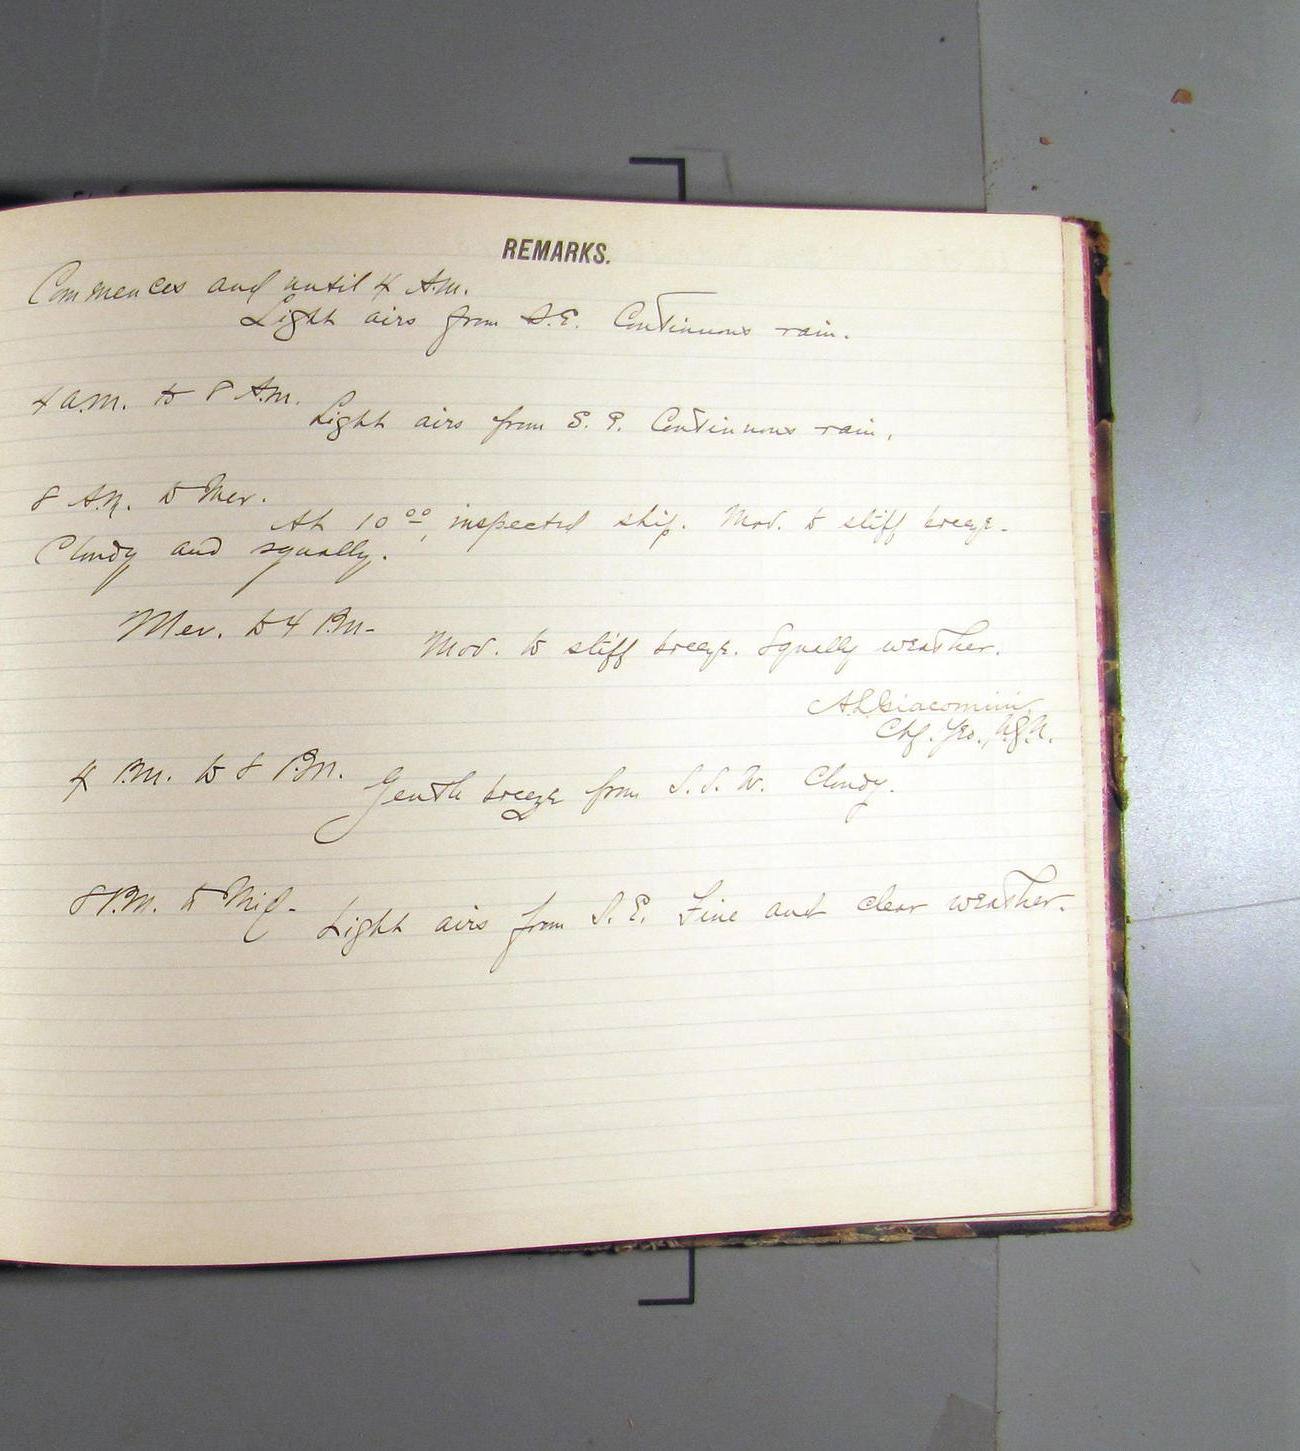 REMARKS.
Commences and until 4 A.M.
Light airs from S.E. Continuous rain.
4 a.m. to 8 A.M.
Light airs from S.E. Continuous rain.
8 A.M. to Mer.
At 10 00, inspected ship. Mod. to stiff breeze.
Cloudy and squally.
Mer. to 4 P.M-
Mod. to stiff breeze. Squally weather.
A.L. Giacomini,
Chf. Yeo., U.S.N.
4 P.M. to 8 P.M.
Gentle breeze from S.S.W. Cloudy.
8 P.M. to Mid-
Light airs from S.E. Fine and clear weather.